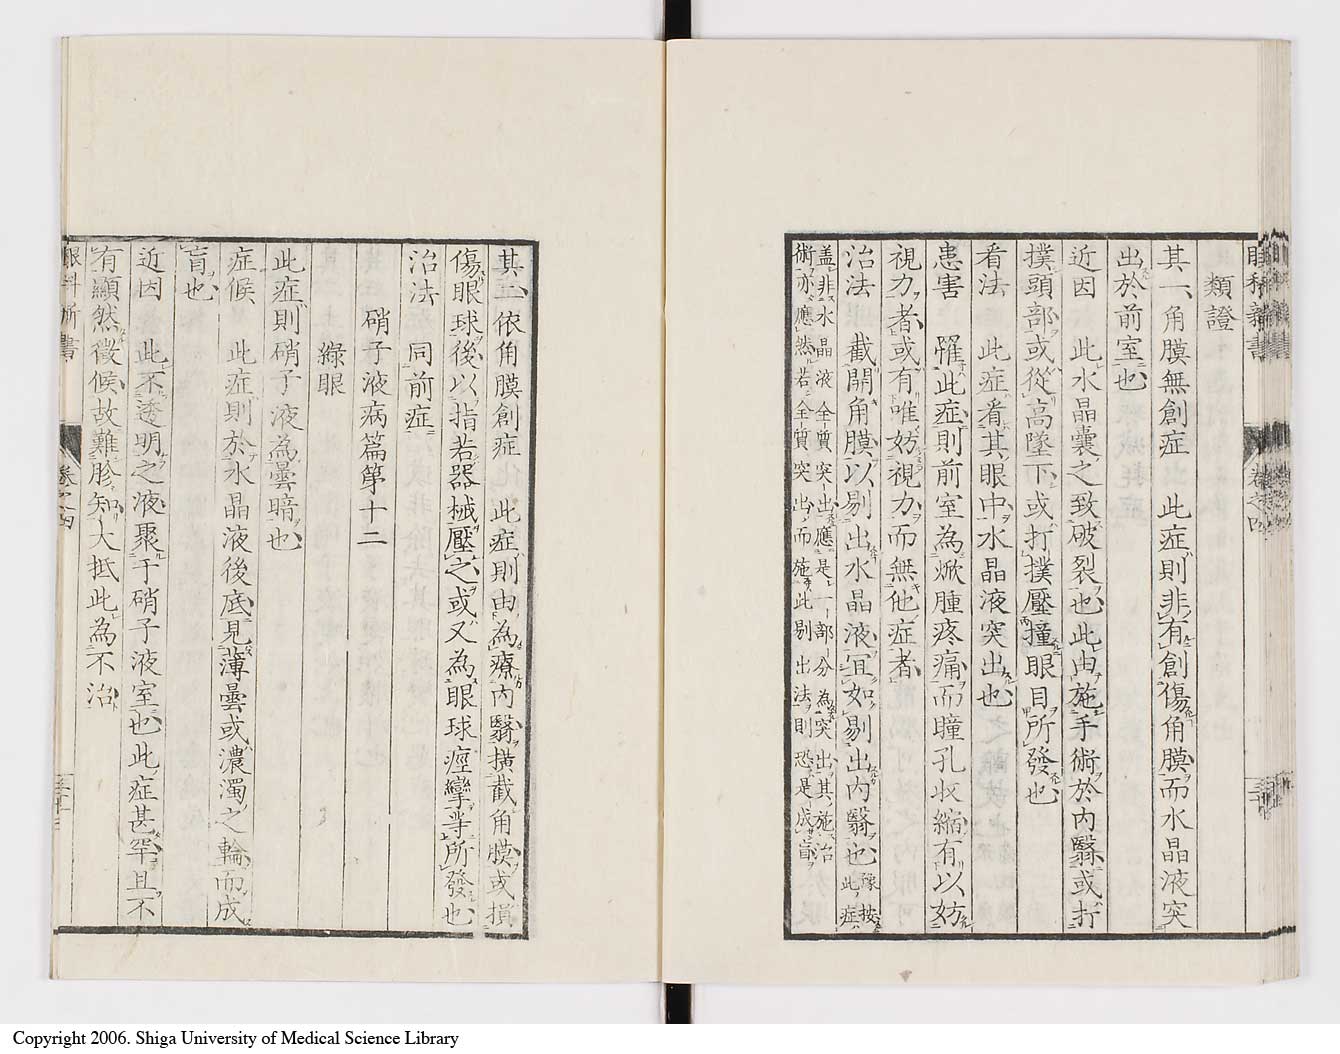 眼科新書
卷之四
類證
其一、角膜無創症 此症則非有創傷角膜而水晶液突
出於前室也
近因 此水晶囊之致破裂也此由施手術於内翳或打
撲頭部或從高墜下或打撲壓撞眼目所發也
看法 此症看其眼中水晶液突出也
患害 罹此症則前室為焮腫疼痛而瞳孔收縮有以妨
視力者或有唯妨視力而無他症者
治法 截開角膜以剔出水晶液宜如剔出内翳也 豫按此症
蓋非水晶液全質突出應是一部分為突出其施治
術亦應然若全質突出而施此剔出法則恐是成盲
其二、依角膜創症 此症則由為療内翳横截角膜或損
傷眼球後以指若器械壓之或又為眼球痙攣等所發也
治法 同前症
硝子液病篇第十二
綠眼
此症則硝子液為曇暗也
症候 此症則於水晶液後底見薄曇或濃濁之輪而成
盲也
近因 此不透明之液聚于硝子液室也此症甚罕且不
有顯然徵候故難胗知大抵此為不治
眼科新書
卷之四
Copyright 2006. Shiga University of Medical Science Library